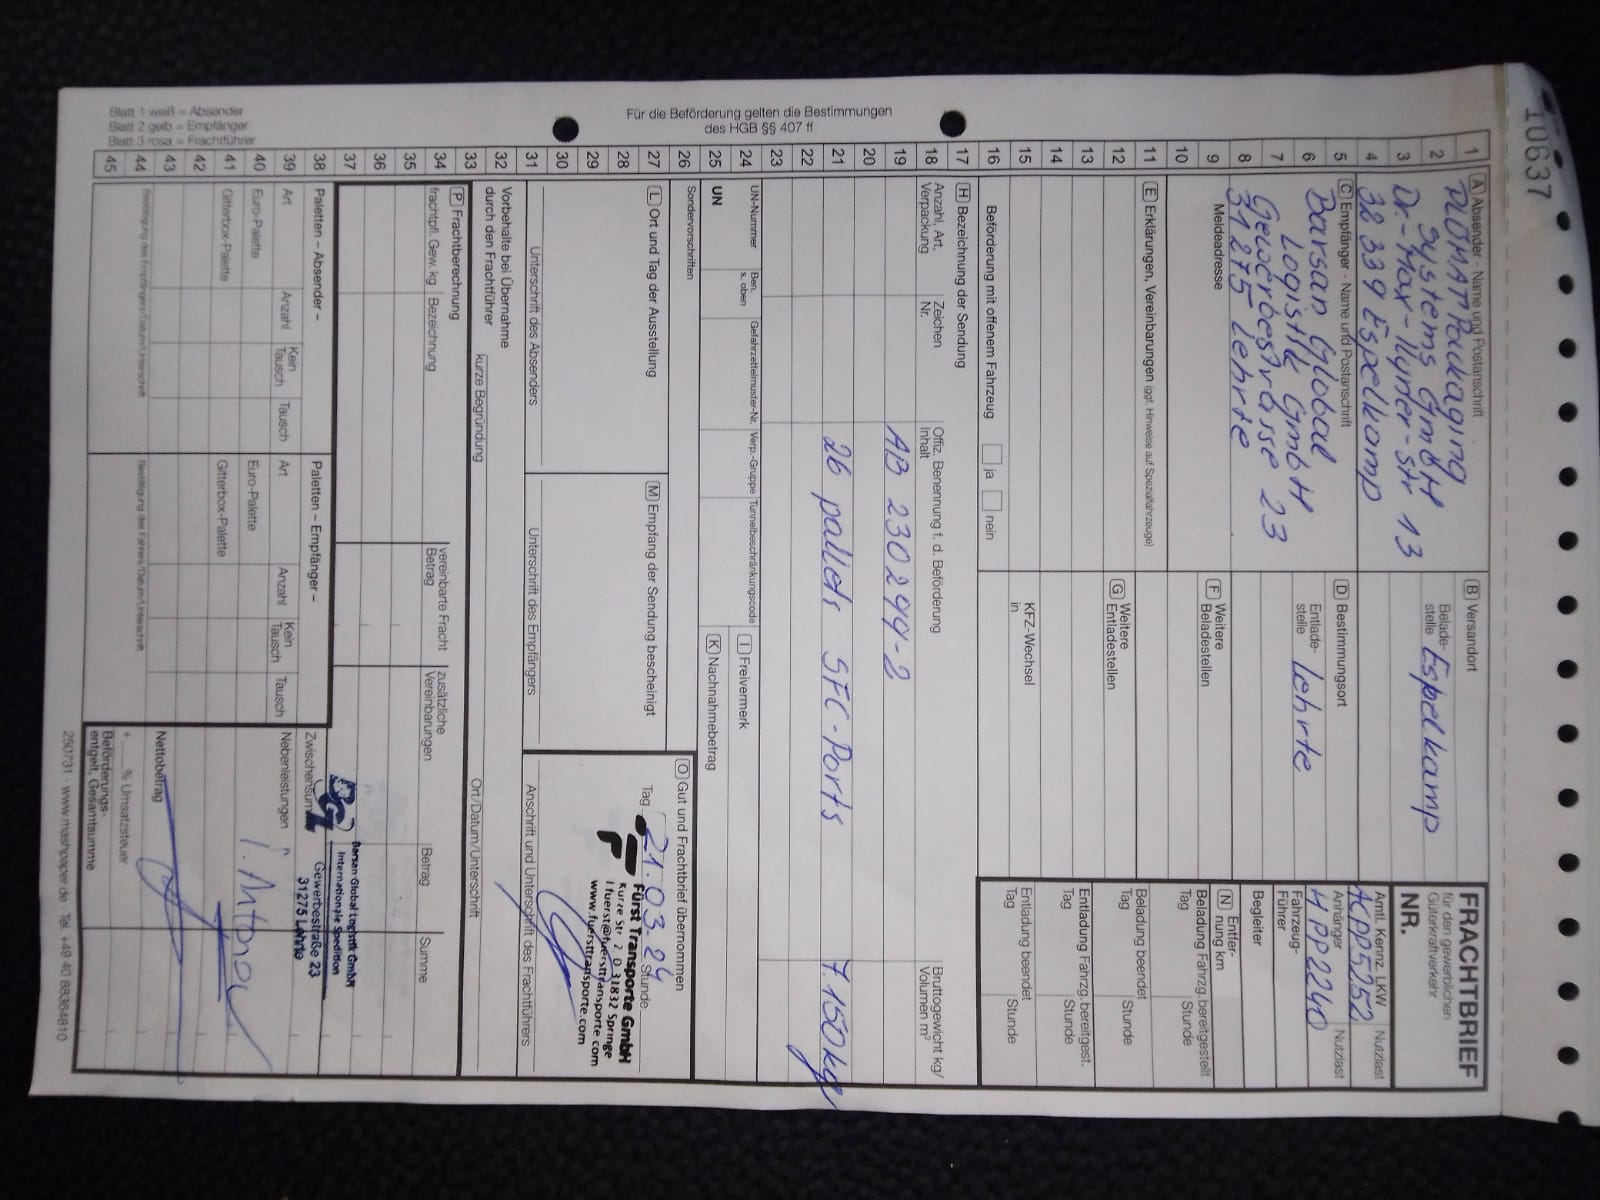 10637
FRACHTBRIEF
für den gewerblichen
Güterkraftverkehr
NR.
A Absender - Name und Postanschrift
Packaging
Systems GmbH
Dr.-Max-Ilgner-Str 13
32339 Espelkamp
B Versandort
Belade-
stelle Espelkamp
Amtl. Kennz. LKW
Nutzlast
Anhänger
Nutzlast
HPP2240
Fahrzeug-
Führer
Begleiter
C Empfänger - Name und Postanschrift
Barsan Global
Logistik GmbH
Gewerbestrasse 23
31275 Lehrte
Meldeadresse
D Bestimmungsort
Entlade-
stelle Lehrte
F Weitere
Beladestellen
G Weitere
Entladestellen
KFZ-Wechsel
in
N Entfer-
nung km
Beladung Fahrzg. bereitgestellt
Tag Stunde
Beladung beendet
Tag Stunde
Entladung Fahrzg. bereitgest.
Tag Stunde
Entladung beendet
Tag Stunde
E Erklärungen, Vereinbarungen (ggf. Hinweise auf Spezialfahrzeuge)
Beförderung mit offenem Fahrzeug ja nein
H Bezeichnung der Sendung
Anzahl, Art,
Verpackung
Zeichen
Nr.
Offiz. Benennung f. d. Beförderung
Inhalt
Bruttogewicht kg/
Volumen m³
AB 230244-2
26 pallets SFC-Ports 7.150kg
UN-Nummer
Ben.
s. oben
Gefahrzettelmuster-Nr.
Verp.-Gruppe
Tunnelbeschränkungscode
UN
I Freivermerk
K Nachnahmebetrag
Sondervorschriften
L Ort und Tag der Ausstellung
M Empfang der Sendung bescheinigt
O Gut und Frachtbrief übernommen
Tag 21.03.24 Stunde
Fürst Transporte GmbH
Kurze Str. 2 D 31832 Springe
www.fuersttransporte.com
Unterschrift des Absenders
Unterschrift des Empfängers
Anschrift und Unterschrift des Frachtführers
Vorbehalte bei Übernahme
durch den Frachtführer
kurze Begründung
Ort/Datum/Unterschrift
P Frachtberechnung
frachtpfl. Gew. kg
Bezeichnung
vereinbarte Fracht
Betrag
zusätzliche
Vereinbarungen
Betrag
Summe
Barsan Global Logistik GmbH
Internationale Spedition
Gewerbestraße 23
31275 Lehrte
Paletten – Absender –
Art Anzahl Kein Tausch Tausch
Euro-Palette
Gitterbox-Palette
Bestätigung des Empfängers/Datum/Unterschrift
Paletten – Empfänger –
Art Anzahl Kein Tausch Tausch
Euro-Palette
Gitterbox-Palette
Bestätigung des Fahrers/Datum/Unterschrift
Zwischensumme
Nebenleistungen
Nettobetrag
+ % Umsatzsteuer
Beförderungs-
entgelt, Gesamtsumme
Für die Beförderung gelten die Bestimmungen
des HGB §§ 407 ff
Blatt 1 weiß = Absender
Blatt 2 gelb = Empfänger
Blatt 3 rosa = Frachtführer
250731 · www.mashpaper.de · Tel. +49 40 88364810
1 2 3 4 5 6 7 8 9 10 11 12 13 14 15 16 17 18 19 20 21 22 23 24 25 26 27 28 29 30 31 32 33 34 35 36 37 38 39 40 41 42 43 44 45